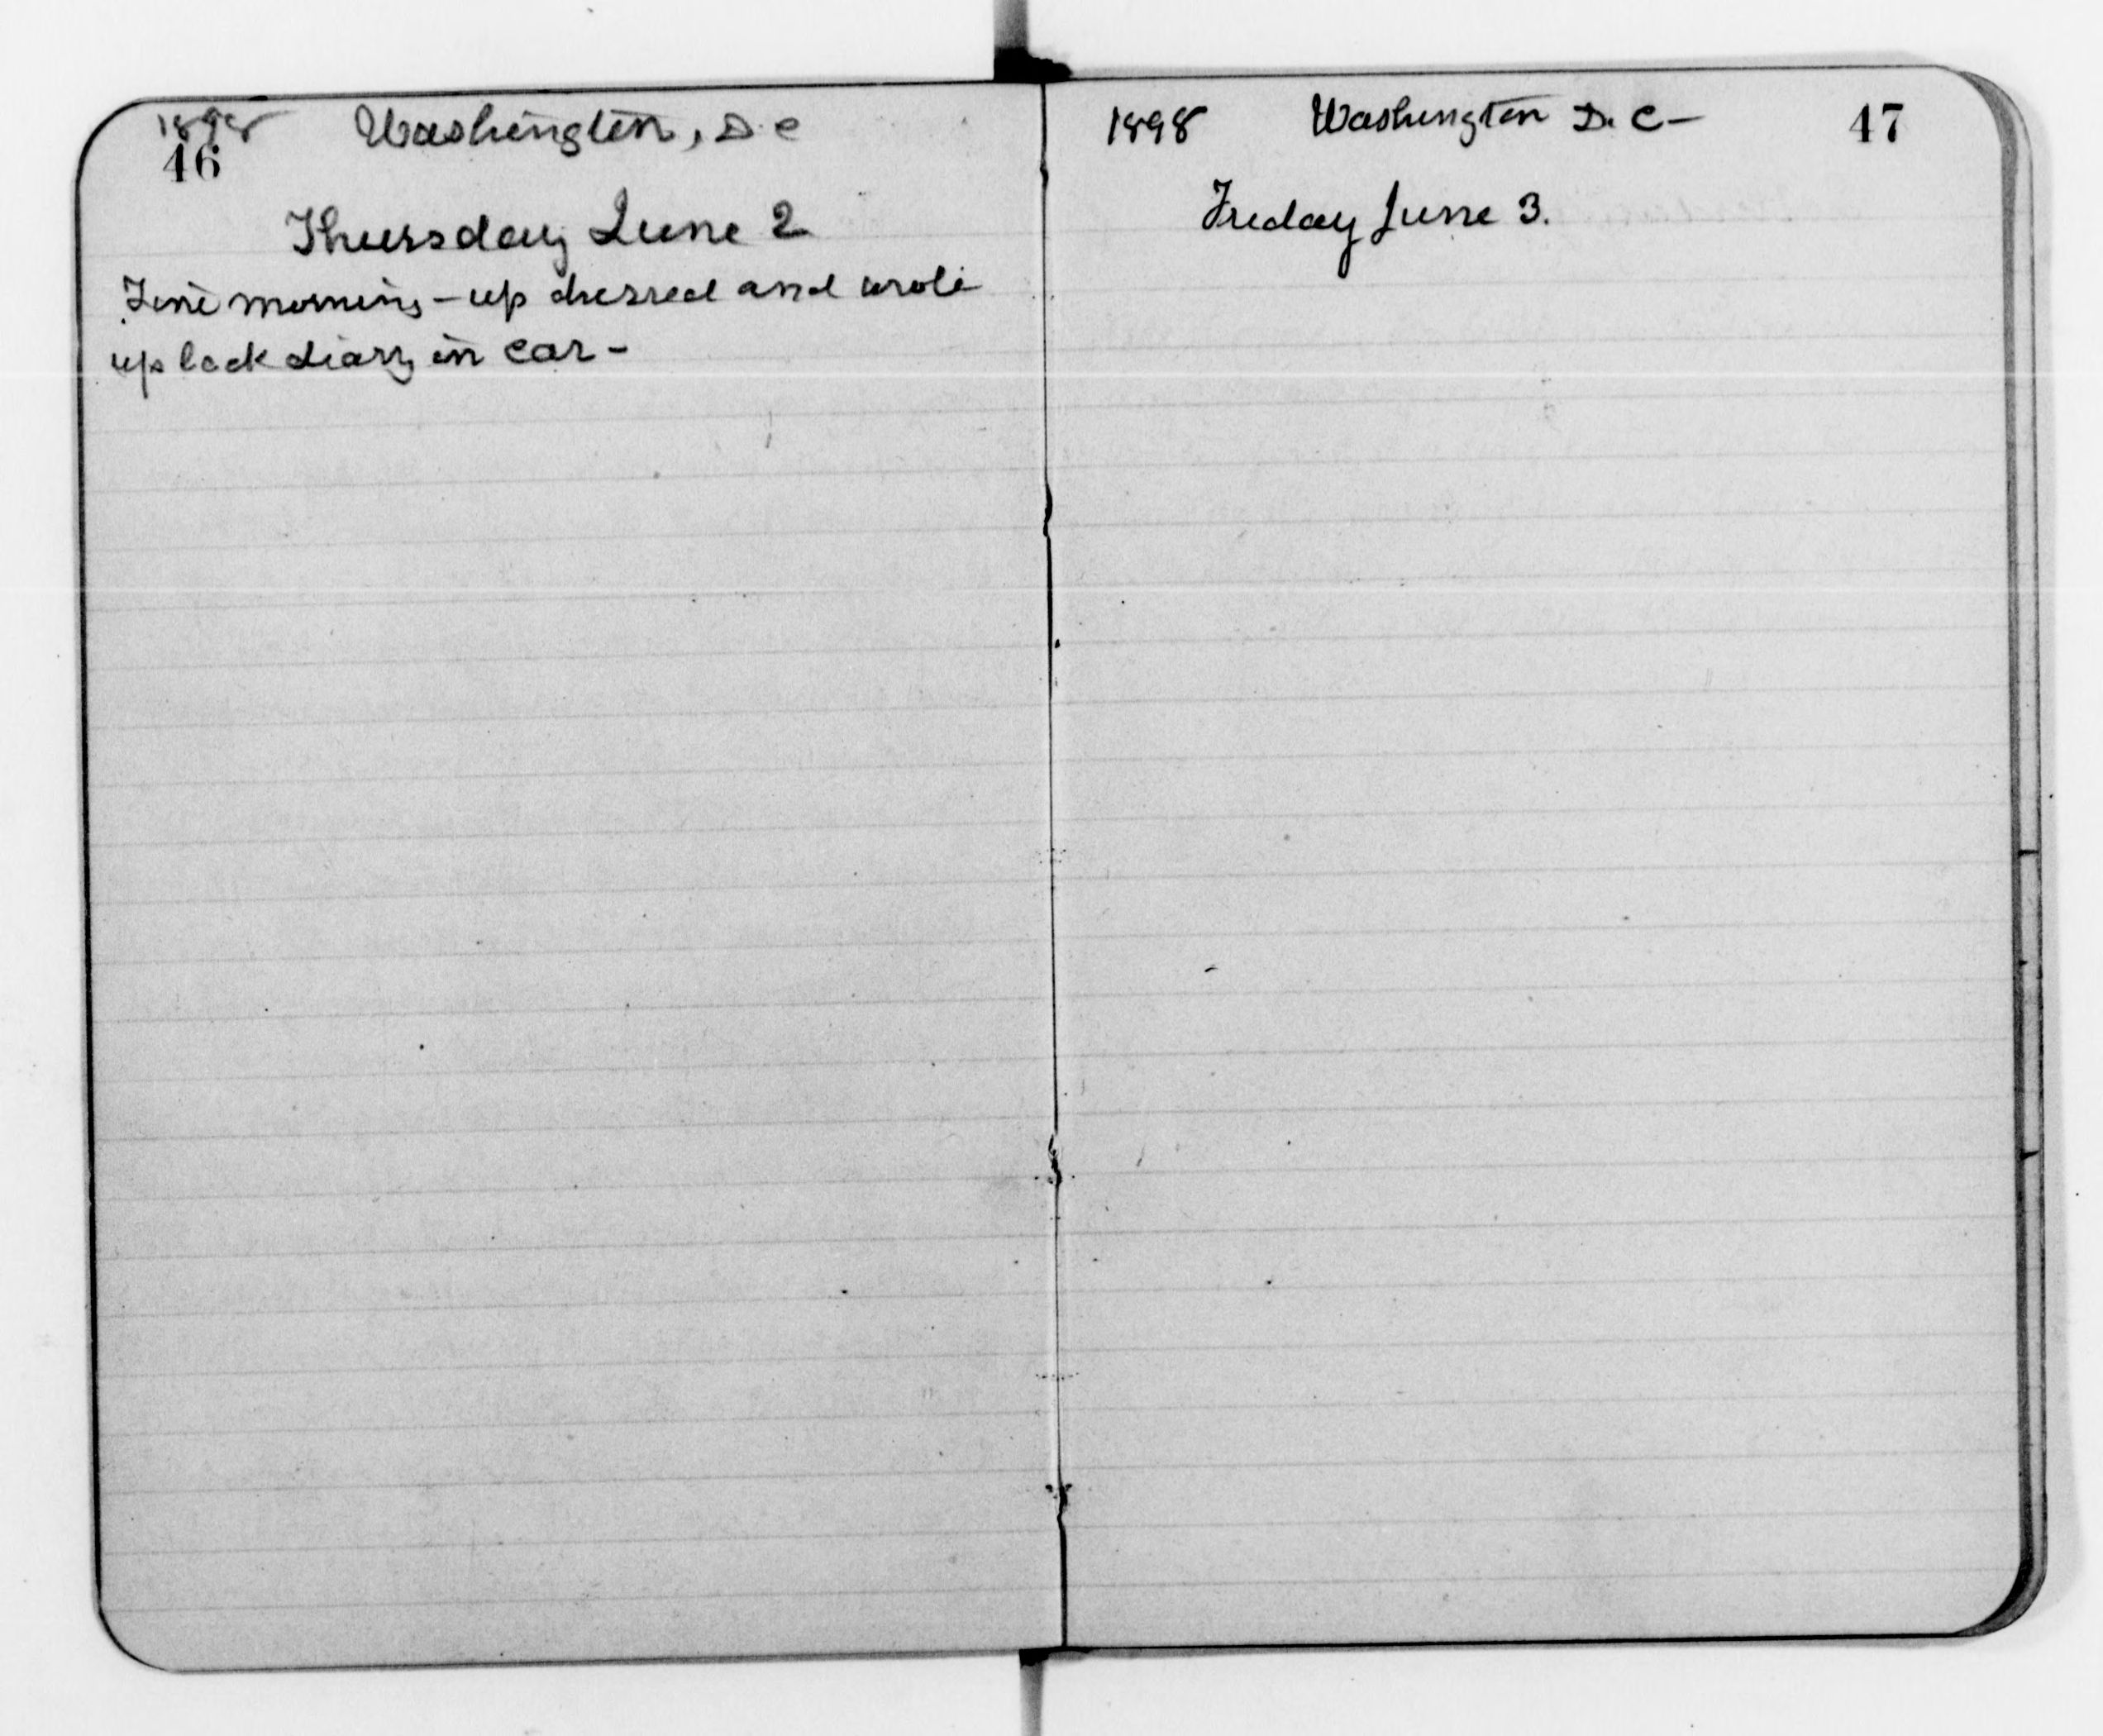 1898 Washington, D.C
46
Thursday June 2
Fine morning - up dressed and wrote
up back diary in car -
1898 Washington D.C - 47
Friday June 3.